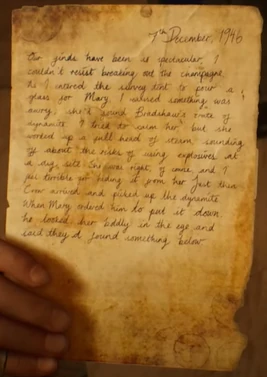 7th December, 1946
Our finds have been so spectacular, I
couldn't resist breaking out the champagne.
As I entered the survey tent to pour a
glass for Mary, I realised something was
awry, she'd found Bradshaw's crate of
dynamite. I tried to calm her, but she
worked up a full head of steam sounding
off about the risks of using explosives at
a dig site. She was right, of course, and I
felt terrible for hiding it from her. Just then
Crow arrived and picked up the dynamite.
When Mary ordered him to put it down
he looked her oddly in the eye and
said they'd found something below